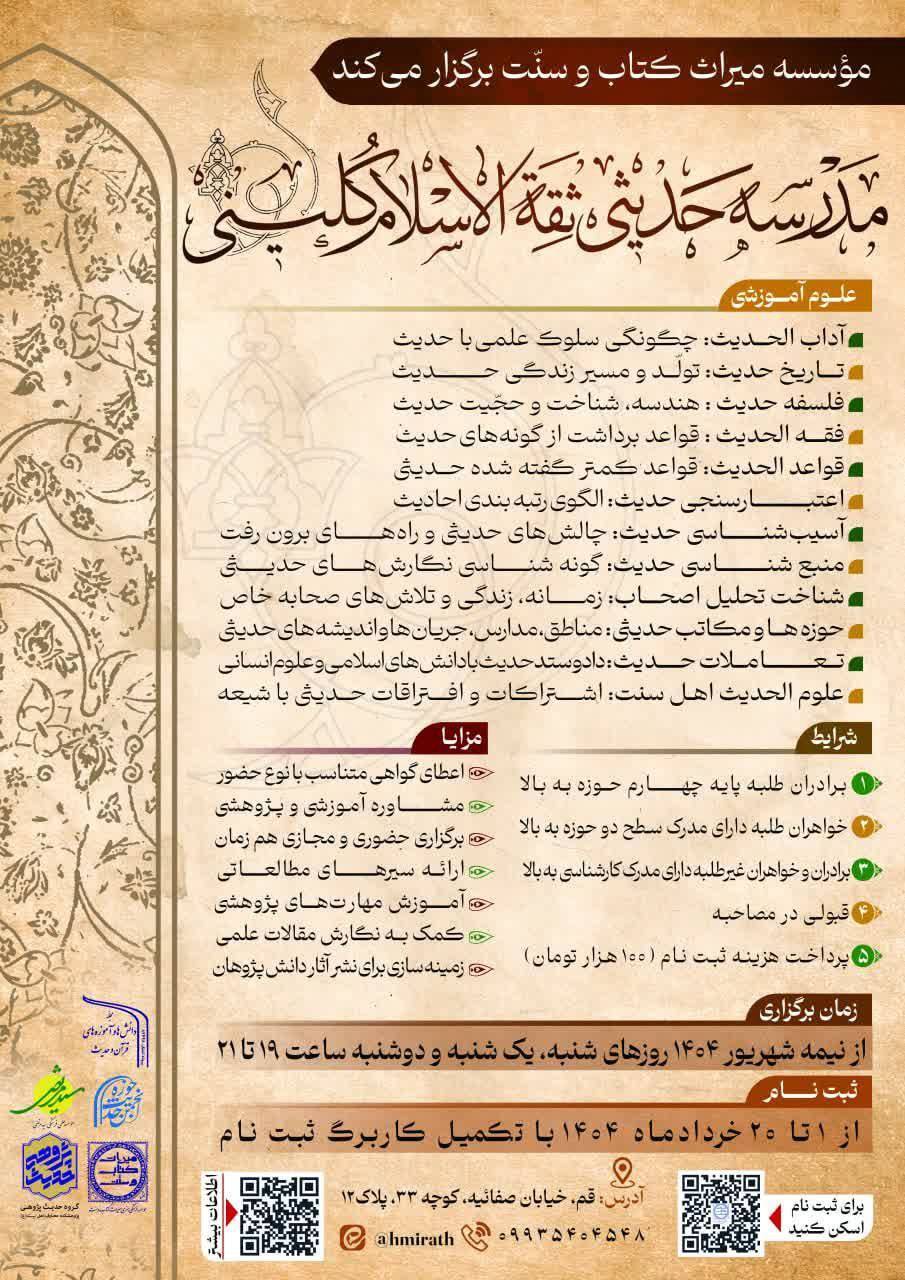 مؤسسه میراث کتاب و سنّت برگزار می‌کند
مَدْرسه حَدیثی ثِقَة الاسْلام کُلینی
علـوم آمـوزشی
آداب الحـدیث: چگونگی سلوک علمی با حدیث
تـاریخ حدیث: تولّـد و مسیر زندگـی حـــدیث
فلسفه حدیث : هندسه، شناخت و حجّیت حدیث
فقـه الحدیث : قواعد برداشت از گونه‌های حدیث
قواعد الحدیث: قواعد کمتر گفته شده حدیثی
اعتبـــارسنجی حدیث: الگوی رتبه بندی احادیث
آسیب‌شنـاسی حدیث: چالش‌های حدیثی و راه‌هـای برون رفت
منبع شنـاسی حدیث: گونه شنـاسی نگارش‌هـای حدیـثی
شناخت تحلیل اصحـاب: زمـانه، زندگی و تلاش‌های صحابه خاص
حوزه ها و مکاتب حدیثی: مناطق، مدارس، جریان ها و اندیشه های حدیثی
تـعـاملات حـدیث: دادوستد حدیث با دانش‌های اسلامی و علوم انسانی
علوم الحدیث اهل سنت: اشتراکات و افتراقات حدیثی با شیعه
شرایط
۱ برادران طلبه پایه چهـارم حوزه به بالا
۲ خواهران طلبه دارای مدرک سطح دو حوزه به بالا
۳ برادران و خواهران غیرطلبه دارای مدرک کارشناسی به بالا
۴ قبولی در مصاحبه
۵ پرداخت هزینه ثبت نام (۱۰۰ هزار تومان)
مزایـا
اعطای گواهی متناسب با نوع حضور
مشـاوره آموزشی و پژوهشی
برگزاری حضوری و مجازی هم زمان
ارائه سیرهـای مطالعـاتی
آمـوزش مهارت‌های پژوهشی
کمک به نگارش مقالات علمی
زمینه‌سازی برای نشر آثار دانش پژوهان
زمان برگزاری
از نیمه شهریور ۱۴۰۴ روزهای شنبه، یک شنبه و دوشنبه ساعت ۱۹ تا ۲۱
ثبت نـام
از ۱ تا ۲۵ خردادماه ۱۴۰۴ با تکمیل کاربرگ ثبت نام
برای ثبت نام
اسکن کنید
آدرس: قم، خیابان صفائیه، کوچه ۳۳، پلاک۱۲
۰۹۹۳۵۴۰۴۵۴۸
@hmirath
اطلاعات بیشتر
مجله
دانش‌ها و آموزه‌های
قرآن و حدیث
انجمن حدیث حوزه
میراث
کتاب
و سنت
پژوهه
حدیث
گروه حدیث پژوهی